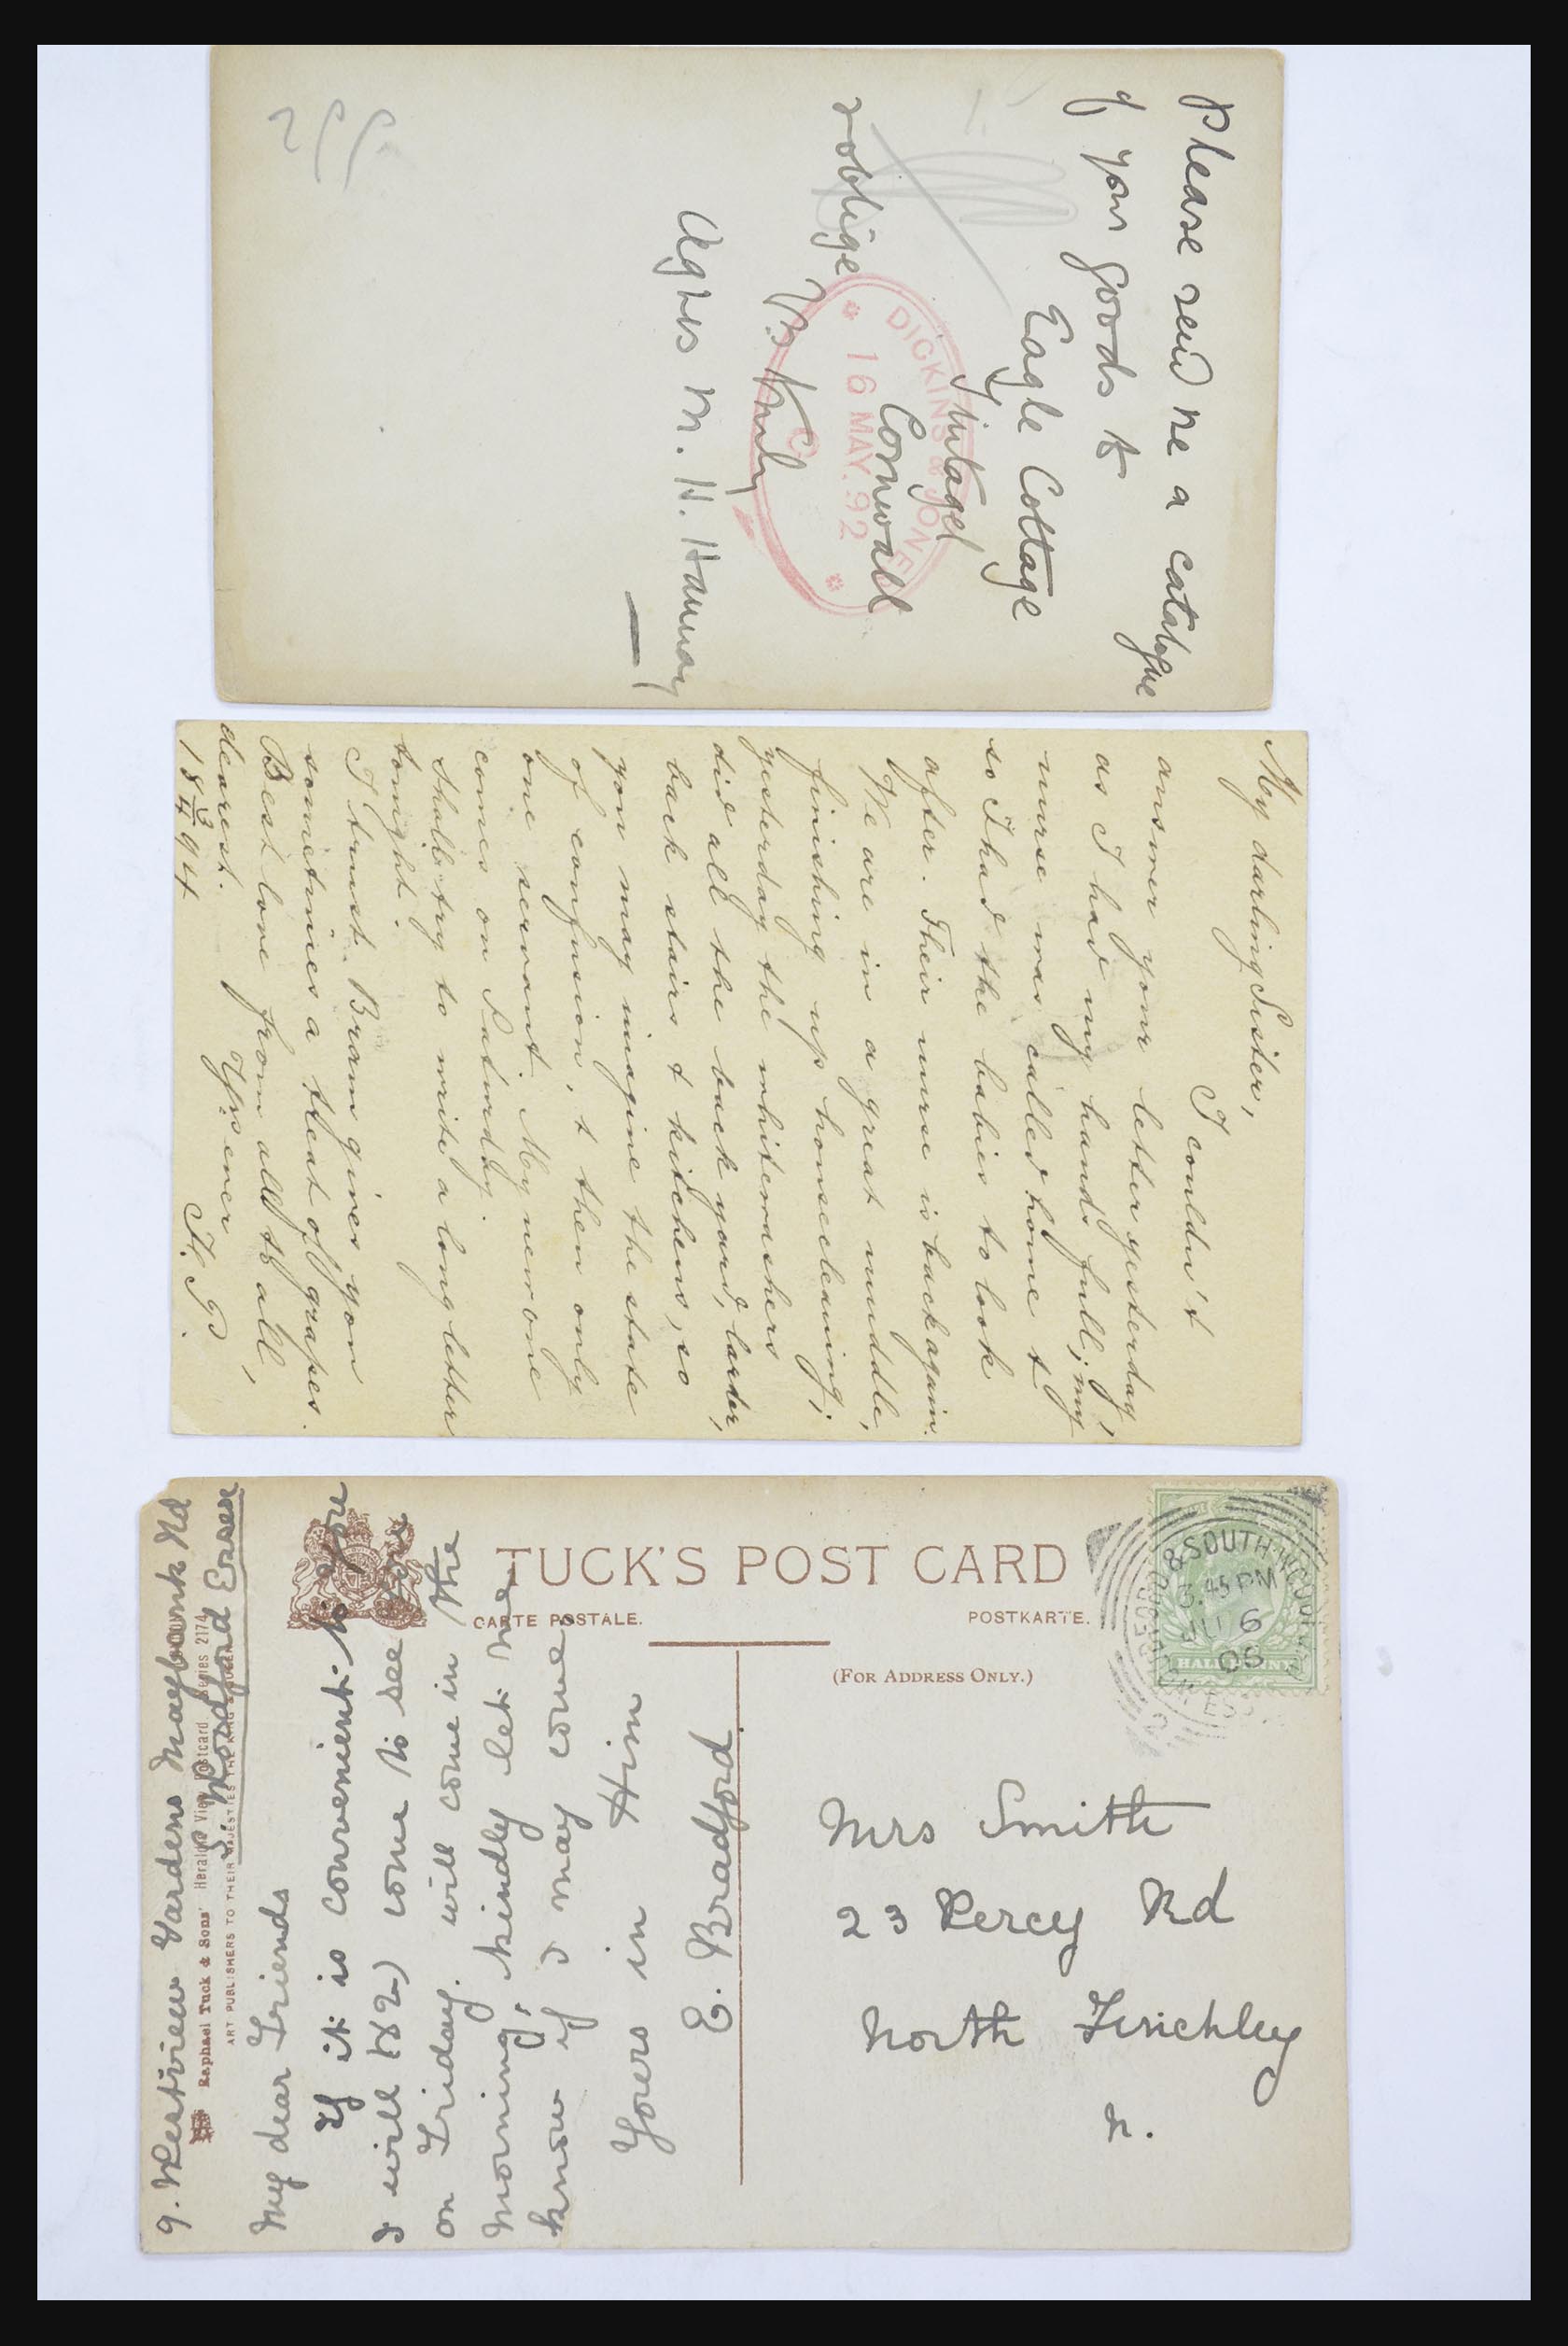 Please send me a catalogue
of your goods to
Eagle Cottage
Tintagel
Cornwall
& oblige
Yrs truly
Agnes M. H. Hannay
DICKINS & JONES
16 MAY. 92
My darling Sister,
I couldn't
answer your letter yesterday,
as I had my hands full; my
nurse was called home &
so I had the babies to look
after. Their nurse is back again.
We are in a great muddle,
finishing up housecleaning;
yesterday the whitewashers
did all the back yard, larder,
back stairs & kitchens, so
you may imagine the state
of confusion, & then only
one servant. My new one
comes on Saturday.
I shall try to write a long letter
tonight.
I trust Bram gives you
sometimes a treat of grapes.
Best love from all to all,
dearest. Yrs ever
18 94 H. P.
TUCK'S POST CARD
CARTE POSTALE. POSTKARTE.
(FOR ADDRESS ONLY.)
& SOUTH WOODFORD
3.45 PM
JU 6
05
HALFPENNY
Mrs Smith
23 Percy Rd
North Finchley
N.
9. Westview Gardens Maybank Rd
S. Woodford Essex
Raphael Tuck & Sons' Heraldic View Postcard Series 2174
ART PUBLISHERS TO THEIR MAJESTIES THE KING & QUEEN
My dear Friends
If it is convenient to you
I will come to see you
on Friday. will come in the
morning, kindly let me
know if I may come
Yours in Him
E. Bradford